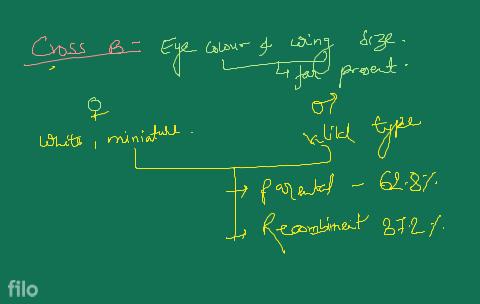 Cross B = Eye colour & wing size.
↳ far present.
♀ ♂
White, miniature. wild type
→ parental - 62.8%
→ Recombinent 37.2%
filo